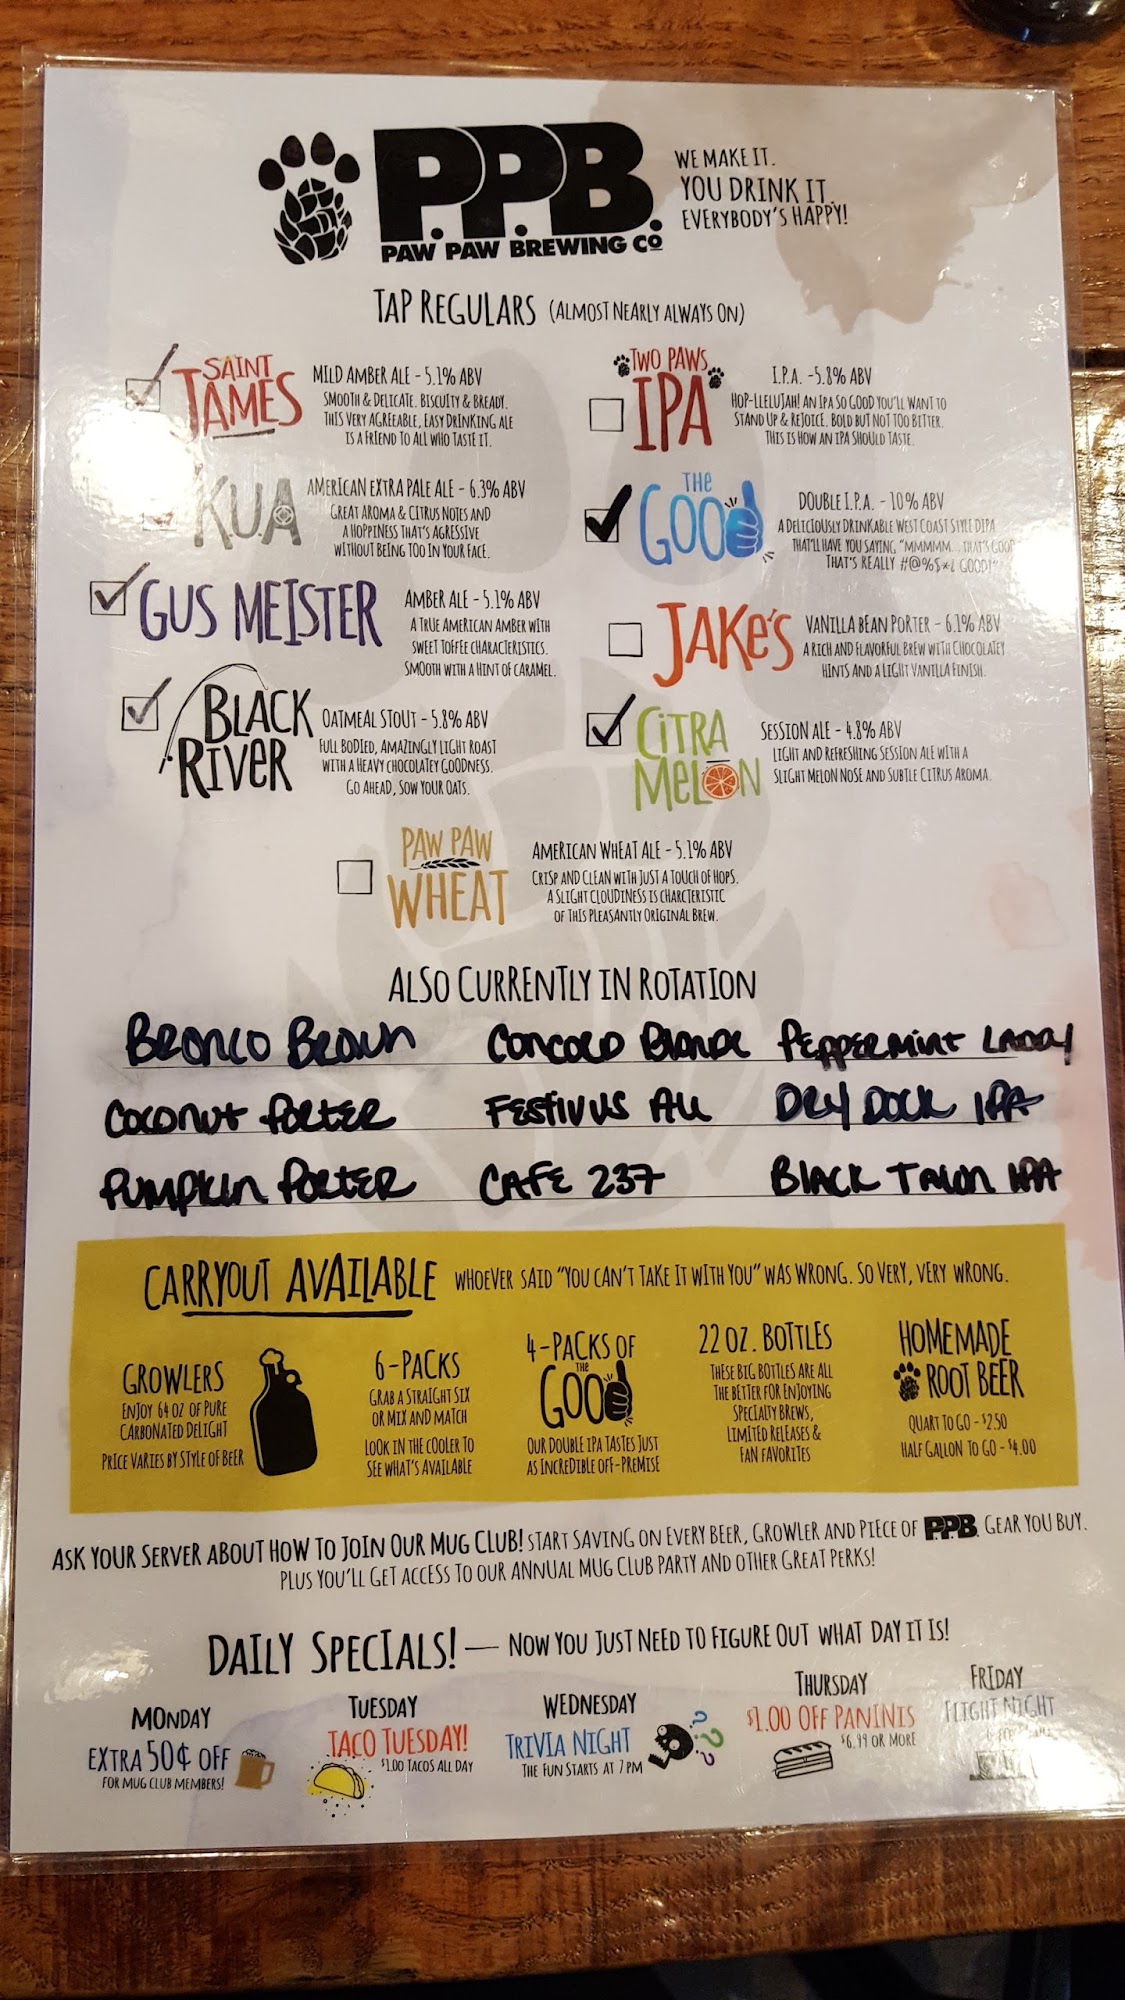 P.P.B.
PAW PAW BREWING CO
WE MAKE IT.
YOU DRINK IT.
EVERYBODY'S HAPPY!
TAP REGULARS (ALMOST NEARLY ALWAYS ON)
SAINT
JAMES
MILD AMBER ALE - 5.1% ABV
SMOOTH & DELICATE. BISCUITY & BREADY.
THIS VERY AGREEABLE, EASY DRINKING ALE
IS A FRIEND TO ALL WHO TASTE IT.
TWO PAWS
IPA
I.P.A. -5.8% ABV
HOP-LLELUJAH! AN IPA SO GOOD YOU'LL WANT TO
STAND UP & REJOICE. BOLD BUT NOT TOO BITTER.
THIS IS HOW AN IPA SHOULD TASTE.
KUA
AMERICAN EXTRA PALE ALE - 6.3% ABV
GREAT AROMA & CITRUS NOTES AND
A HOPPINESS THAT'S AGRESSIVE
WITHOUT BEING TOO IN YOUR FACE.
THE
GOOD
DOUBLE I.P.A. - 10% ABV
A DELICIOUSLY DRINKABLE WEST COAST STYLE DIPA
THAT'LL HAVE YOU SAYING "MMMMM... THAT'S GOOD
THAT'S REALLY #@%$*& GOOD!"
GUS MEISTER
AMBER ALE - 5.1% ABV
A TRUE AMERICAN AMBER WITH
SWEET TOFFEE CHARACTERISTICS.
SMOOTH WITH A HINT OF CARAMEL.
JAKE'S
VANILLA BEAN PORTER - 6.1% ABV
A RICH AND FLAVORFUL BREW WITH CHOCOLATEY
HINTS AND A LIGHT VANILLA FINISH.
BLACK
RIVER
OATMEAL STOUT - 5.8% ABV
FULL BODIED, AMAZINGLY LIGHT ROAST
WITH A HEAVY CHOCOLATEY GOODNESS.
GO AHEAD, SOW YOUR OATS.
CITRA
MELON
SESSION ALE - 4.8% ABV
LIGHT AND REFRESHING SESSION ALE WITH A
SLIGHT MELON NOSE AND SUBTLE CITRUS AROMA.
PAW PAW
WHEAT
AMERICAN WHEAT ALE - 5.1% ABV
CRISP AND CLEAN WITH JUST A TOUCH OF HOPS.
A SLIGHT CLOUDINESS IS CHARCTERISTIC
OF THIS PLEASANTLY ORIGINAL BREW.
ALSO CURRENTLY IN ROTATION
BRONCO BROWN CONCORD BLONDE PEPPERMINT LADDY
COCONUT PORTER FESTIVUS ALE DRY DOCK IPA
PUMPKIN PORTER CAFE 237 BLACK TALON IPA
CARRYOUT AVAILABLE WHOEVER SAID "YOU CAN'T TAKE IT WITH YOU" WAS WRONG. SO VERY, VERY WRONG.
GROWLERS
ENJOY 64 OZ OF PURE
CARBONATED DELIGHT
PRICE VARIES BY STYLE OF BEER
6-PACKS
GRAB A STRAIGHT SIX
OR MIX AND MATCH
LOOK IN THE COOLER TO
SEE WHAT'S AVAILABLE
4-PACKS OF
THE
GOOD
OUR DOUBLE IPA TASTES JUST
AS INCREDIBLE OFF-PREMISE
22 OZ. BOTTLES
THESE BIG BOTTLES ARE ALL
THE BETTER FOR ENJOYING
SPECIALTY BREWS,
LIMITED RELEASES &
FAN FAVORITES
HOMEMADE
ROOT BEER
QUART TO GO - $2.50
HALF GALLON TO GO - $4.00
ASK YOUR SERVER ABOUT HOW TO JOIN OUR MUG CLUB! START SAVING ON EVERY BEER, GROWLER AND PIECE OF P.P.B. GEAR YOU BUY.
PLUS YOU'LL GET ACCESS TO OUR ANNUAL MUG CLUB PARTY AND OTHER GREAT PERKS!
DAILY SPECIALS! — NOW YOU JUST NEED TO FIGURE OUT WHAT DAY IT IS!
MONDAY
EXTRA 50¢ OFF
FOR MUG CLUB MEMBERS!
TUESDAY
TACO TUESDAY!
$1.00 TACOS ALL DAY
WEDNESDAY
TRIVIA NIGHT
THE FUN STARTS AT 7 PM
THURSDAY
$1.00 OFF PANINIS
$6.99 OR MORE
FRIDAY
FLIGHT NIGHT